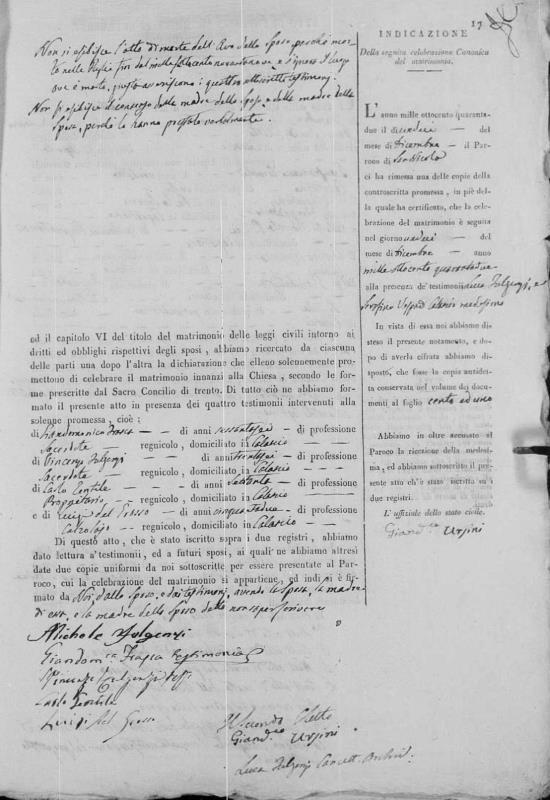 17
Non si esibisce l'atto di morte dell'Avo dello sposo perché mor-
to nelle Puglie fin dal mille settecento novantanove e s'ignora il luogo
ove è morto, giusto asserzione i quattro testimonj.
Non si esibisce il consenso della madre dello sposo, e della madre della
sposa, perchè lo hanno prestato verbalmente.
ed il capitolo VI del titolo del matrimonio delle leggi civili intorno ai
dritti ed obblighi rispettivi degli sposi, abbiamo ricercato da ciascuna
delle parti una dopo l'altra la dichiarazione che elleno solennemente pro-
mettono di celebrare il matrimonio innanzi alla Chiesa, secondo le for-
me prescritte dal Sacro Concilio di trento. Di tutto ciò ne abbiamo
formato il presente atto in presenza dei quattro testimonii intervenuti alla
solenne promessa, cioè;
di Giandomenico Frasca — di anni sessantasei — di professione
Sacerdote — regnicolo, domiciliato in Calascio — —
di Vincenzo Fulgenzj — di anni trentasei — di professione
Sacerdote — regnicolo, domiciliato in Calascio —
di Carlo Gentile — di anni settanta — di professione
Proprietario — regnicolo, domiciliato in Calascio
e di Luigi del Grosso — di anni cinquantadue — di professione
Calzolajo — regnicolo, domiciliato in Calascio — —
Di questo atto, che è stato iscritto sopra i due registri, abbiamo
dato lettura a'testimonii, ed a futuri sposi, ai quali ne abbiamo altresì
date due copie uniformi da noi sottoscritte per essere presentate al Par-
roco, cui la celebrazione del matrimonio si appartiene, ed indi si è fir-
mato da Noi, dallo sposo, e dai testimonj, avendo la sposa, la madre
di essa, e la madre dello sposo detto non saper scrivere
Michele Fulgenzi
Giandom.co Frasca testimonio
Vincenzo Fulgenzj test.
Carlo Gentile
Luigi del Grosso
Il Secondo Eletto
Giand.co Ursini
Luca Fulgenzj Cancell. Archiv.
INDICAZIONE
Della seguita celebrazione Canonica
del matrimonio.
L'anno mille ottocento quaranta-
due il undici — del
mese di Dicembre — il Par-
roco di
ci ha rimessa una delle copie della
controscritta promessa, in piè del-
la quale ha certificato, che la cele-
brazione del matrimonio è seguita
nel giorno undici — del
mese di Dicembre — anno
mille ottocento quarantadue
alla presenza de' testimonii Luca Fulgenzj, e
Serafino Calascio medesimo
In vista di essa noi abbiamo di-
steso il presente notamento, e do-
po di averla cifrata abbiamo di-
sposto, che fosse la copia antidet-
ta conservata nel volume dei docu-
menti al foglio cento ed uno
Abbiamo in oltre accusato al
Paroco la ricezione della medesi-
ma, ed abbiamo sottoscritto il pre-
sente atto ch'è stato iscritto su i
due registri.
L'uffiziale dello stato civile.
Giand.co Ursini